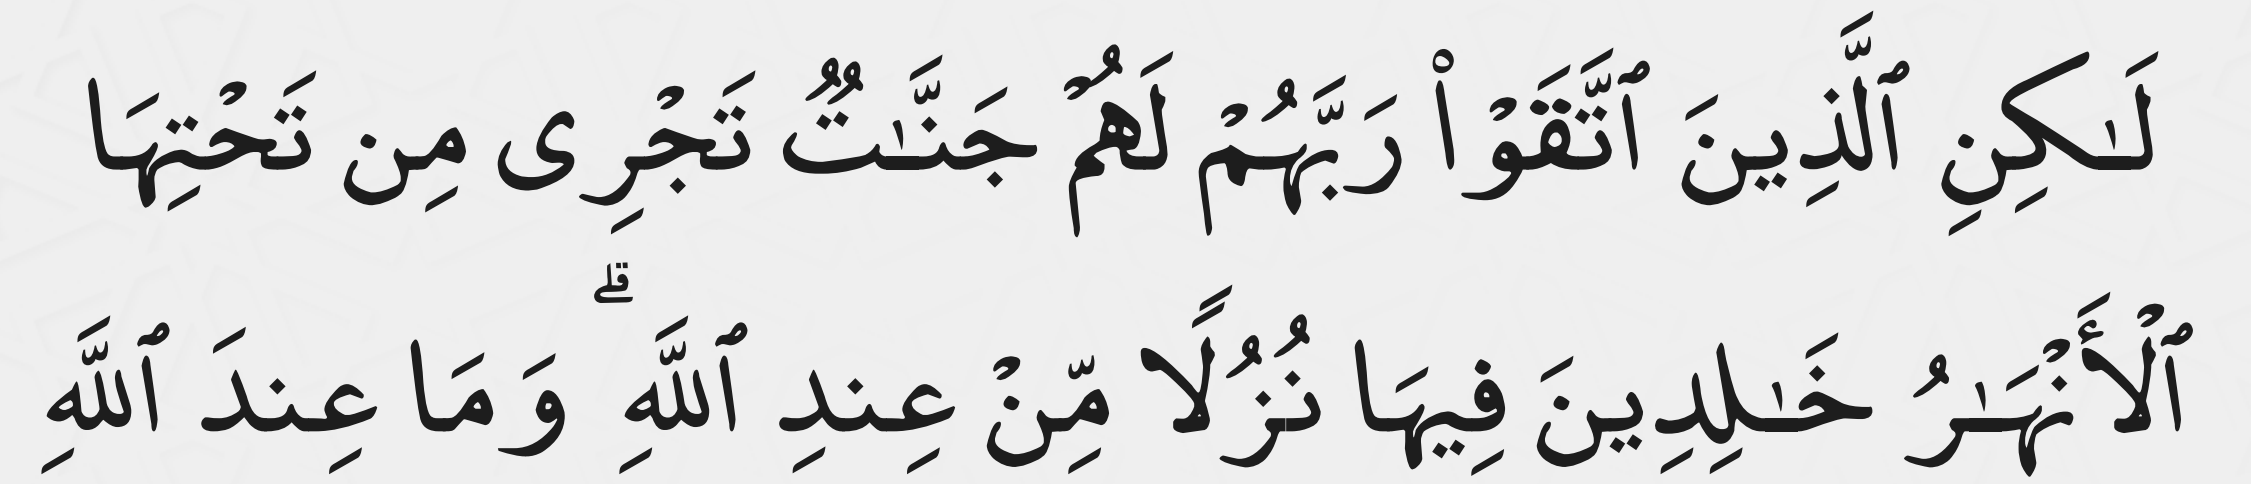 لَـٰكِنِ ٱلَّذِينَ ٱتَّقَوْا۟ رَبَّهُمْ لَهُمْ جَنَّـٰتٌ تَجْرِى مِن تَحْتِهَا
ٱلْأَنْهَـٰرُ خَـٰلِدِينَ فِيهَا نُزُلًا مِّنْ عِندِ ٱللَّهِ ۗ وَمَا عِندَ ٱللَّهِ